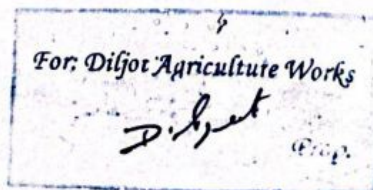 For: Diljot Agriculture Works
Diljot
Prop.